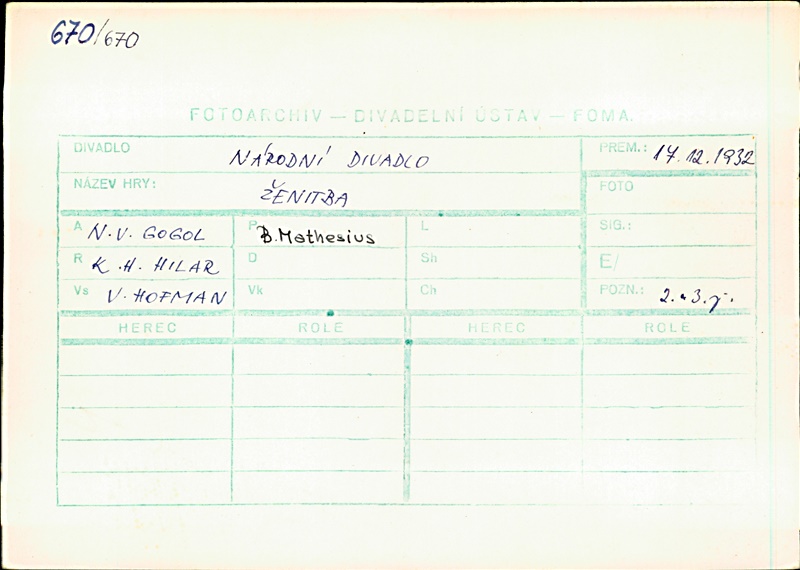 670/670
FOTOARCHIV — DIVADELNÍ ÚSTAV — FOMA
DIVADLO NÁRODNÍ DIVADLO PREM.: 17.12.1932
NÁZEV HRY: ŽENITBA FOTO
A N.V. GOGOL P B. Mathesius L SIG.:
R K.H. HILAR D Sh E/
Vs V. HOFMAN Vk Ch POZN.: 2. a 3. j.
HEREC ROLE HEREC ROLE